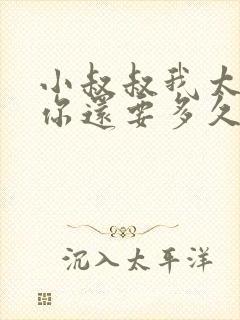 小叔叔我太
你還要多久
沉入太平洋